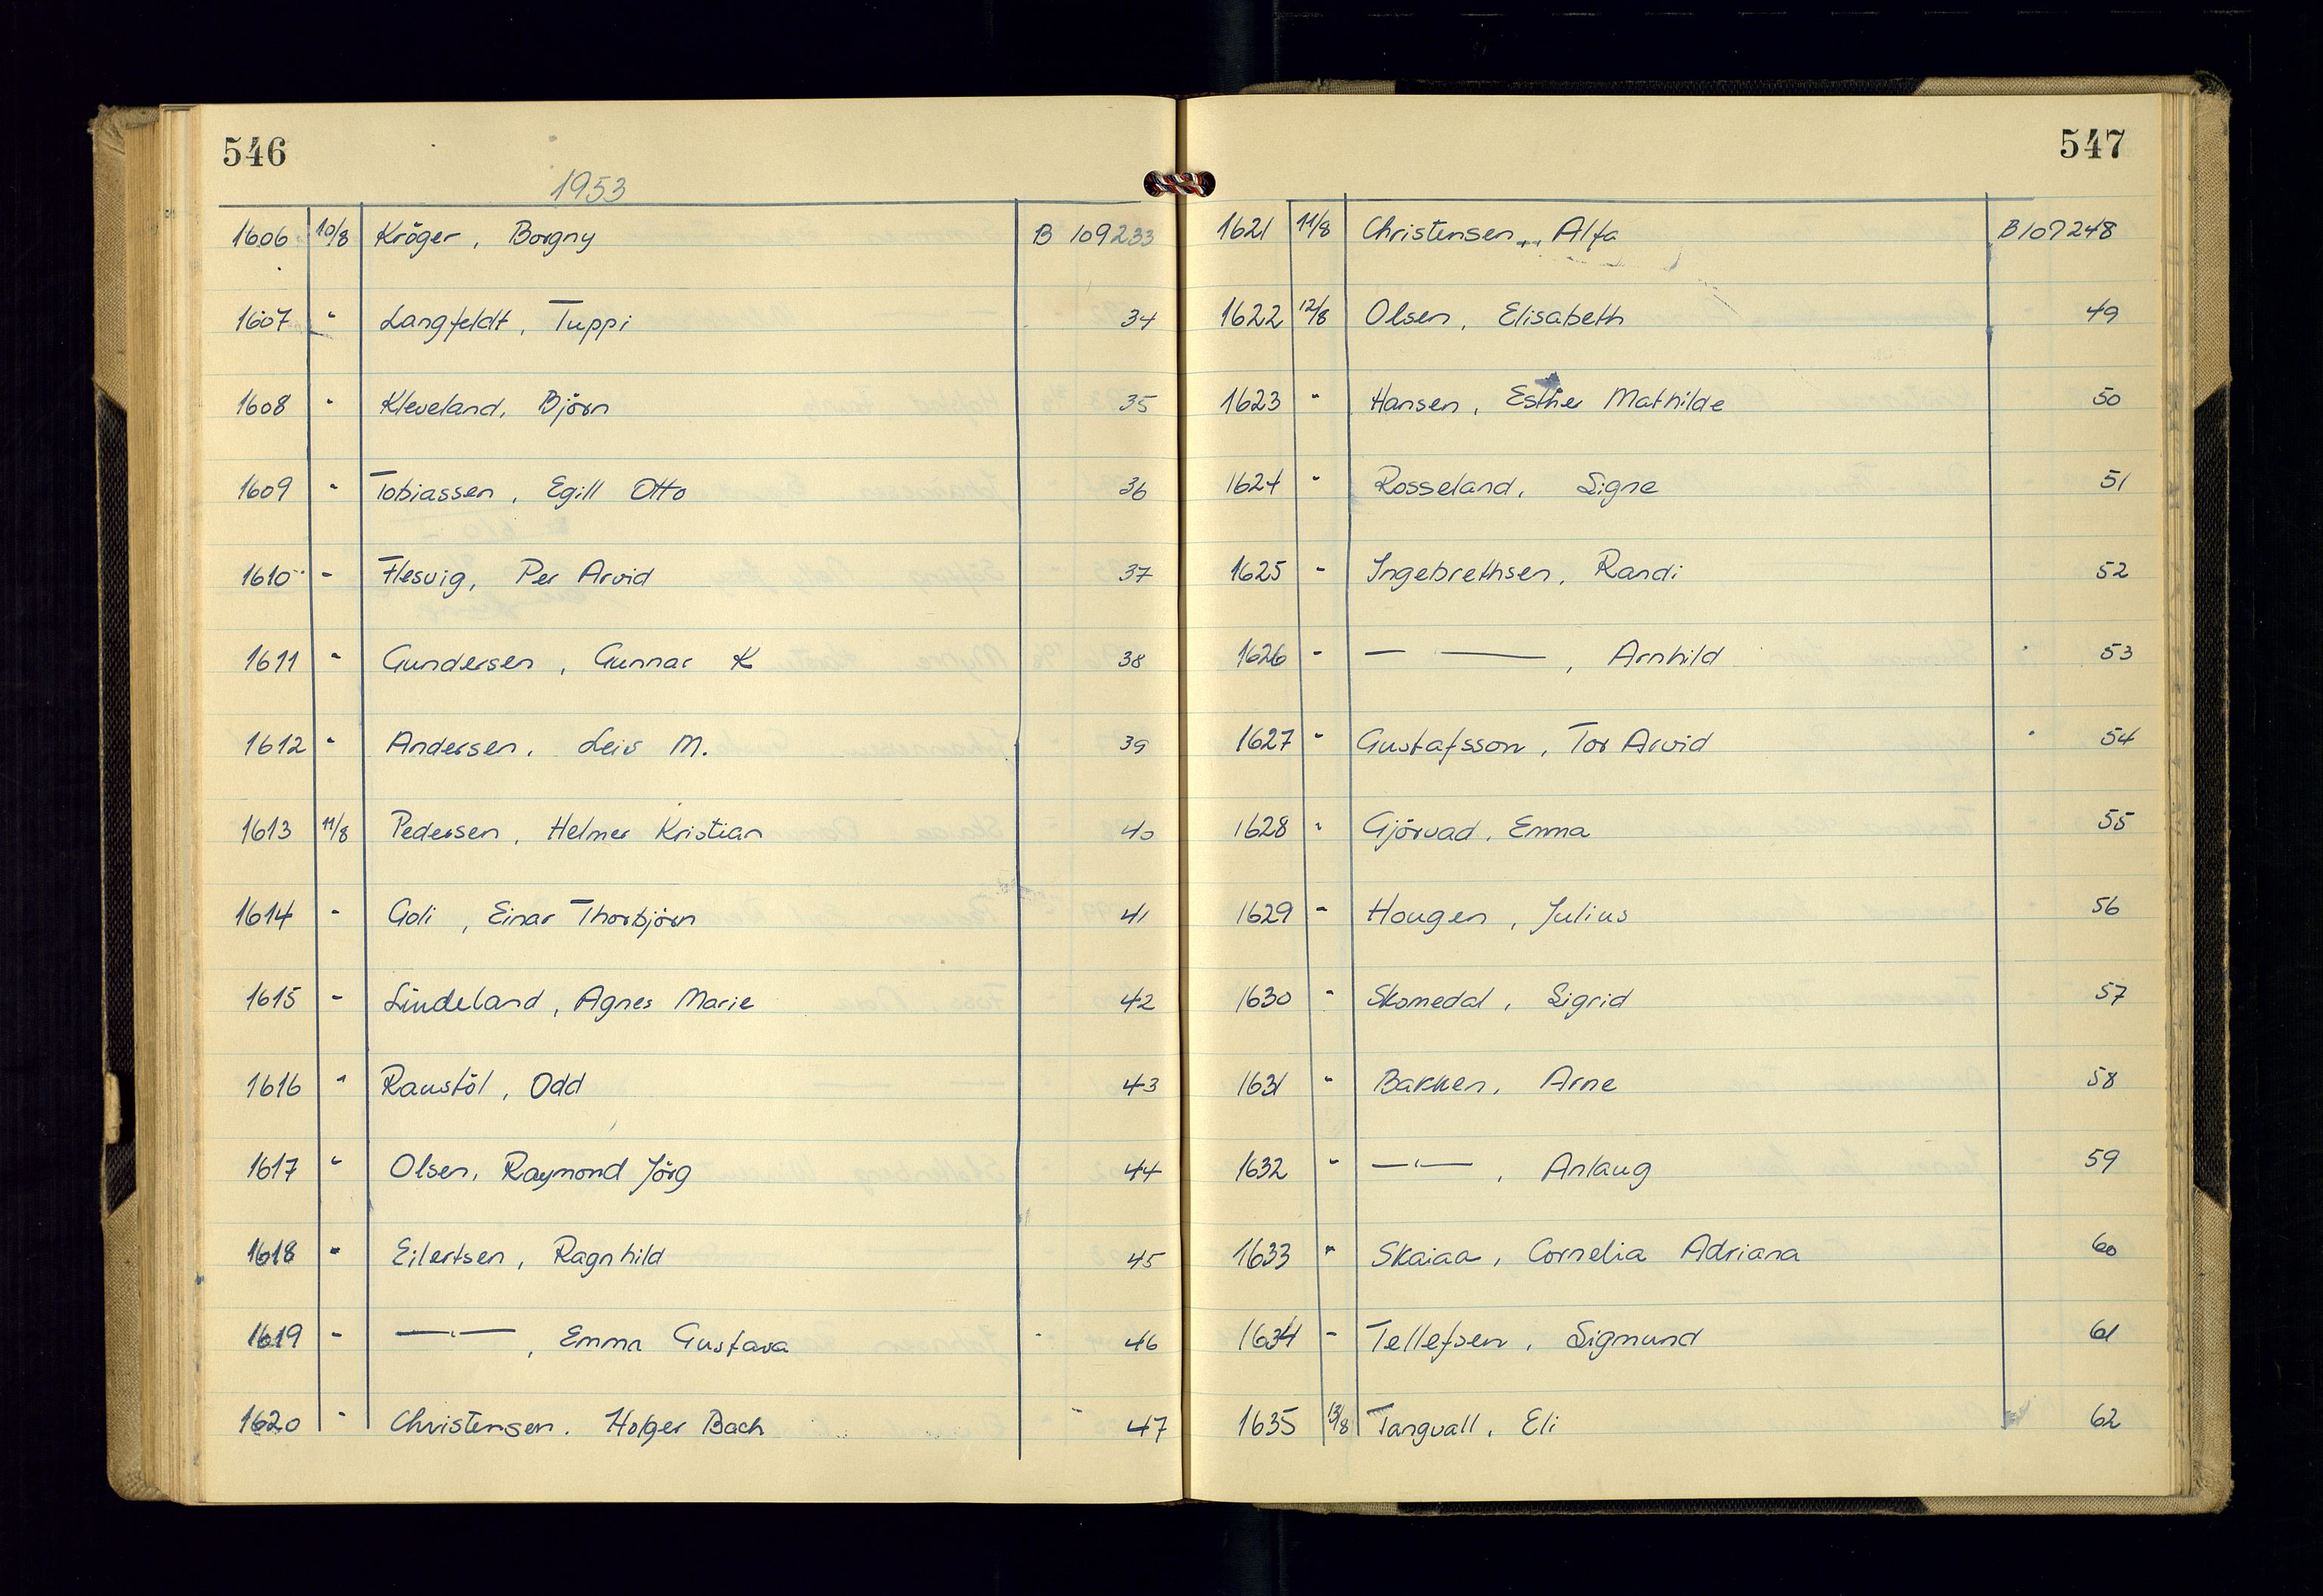 546
1953
1606 10/8 Kröger, Borgny B 109233
1607 " Langfeldt, Tuppi 34
1608 " Kleveland, Björn 35
1609 " Tobiassen, Egill Otto 36
1610 - Flesvig, Per Arvid 37
1611 " Gundersen, Gunnar K 38
1612 " Andersen, Leiv M. 39
1613 11/8 Pedersen, Helmer Kristian 40
1614 - Goli, Einar Thorbjörn 41
1615 - Lindeland, Agnes Marie 42
1616 " Raustöl, Odd 43
1617 " Olsen, Raymond Jörg 44
1618 " Eilertsen, Ragnhild 45
1619 - —"—, Emma Gustava 46
1620 - Christensen. Holger Bach 47
547
1621 11/8 Christensen, Alfa B109248
1622 12/8 Olsen, Elisabeth 49
1623 " Hansen, Esther Mathilde 50
1624 " Rosseland, Signe 51
1625 - Ingebrethsen, Randi 52
1626 - — ——, Arnhild 53
1627 " Gustafsson, Tor Arvid 54
1628 " Gjörvad, Emma 55
1629 - Hougen, Julius 56
1630 " Skomedal, Sigrid 57
1631 " Bakken, Arne 58
1632 " —"—, Anlaug 59
1633 " Skaiaa, Cornelia Adriana 60
1634 - Tellefsen, Sigmund 61
1635 13/8 Tangvall, Eli 62